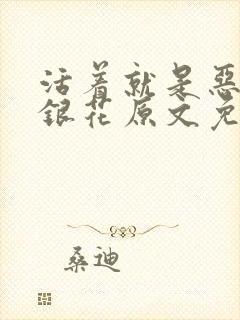 活着就是恶
银花原文免
桑迪